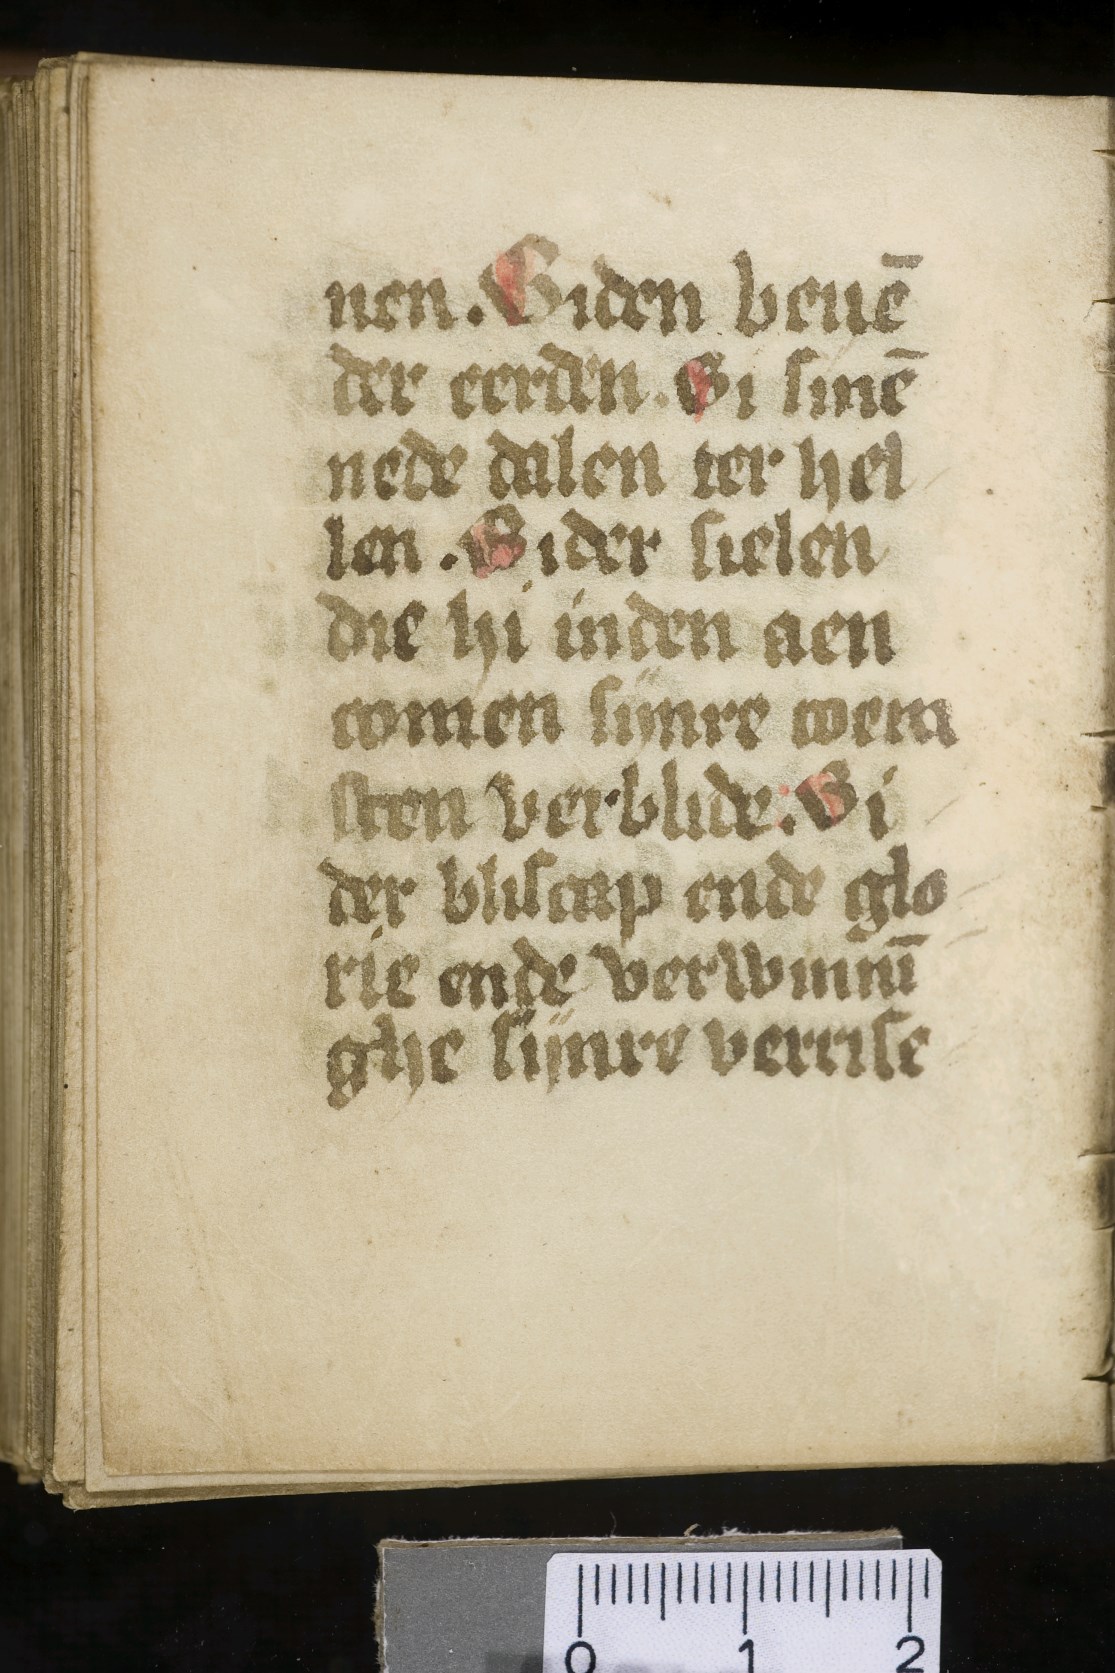 nen. Biden beuē
der eerden. Bi sinē
nede dalen ter hel
len. Bider sielen
die hi inden aen
comen sijnre coem
sten verblide:. Bi
der bliscap ende glo
rie ende verwinnī
ghe sijnre verrise
0 1 2